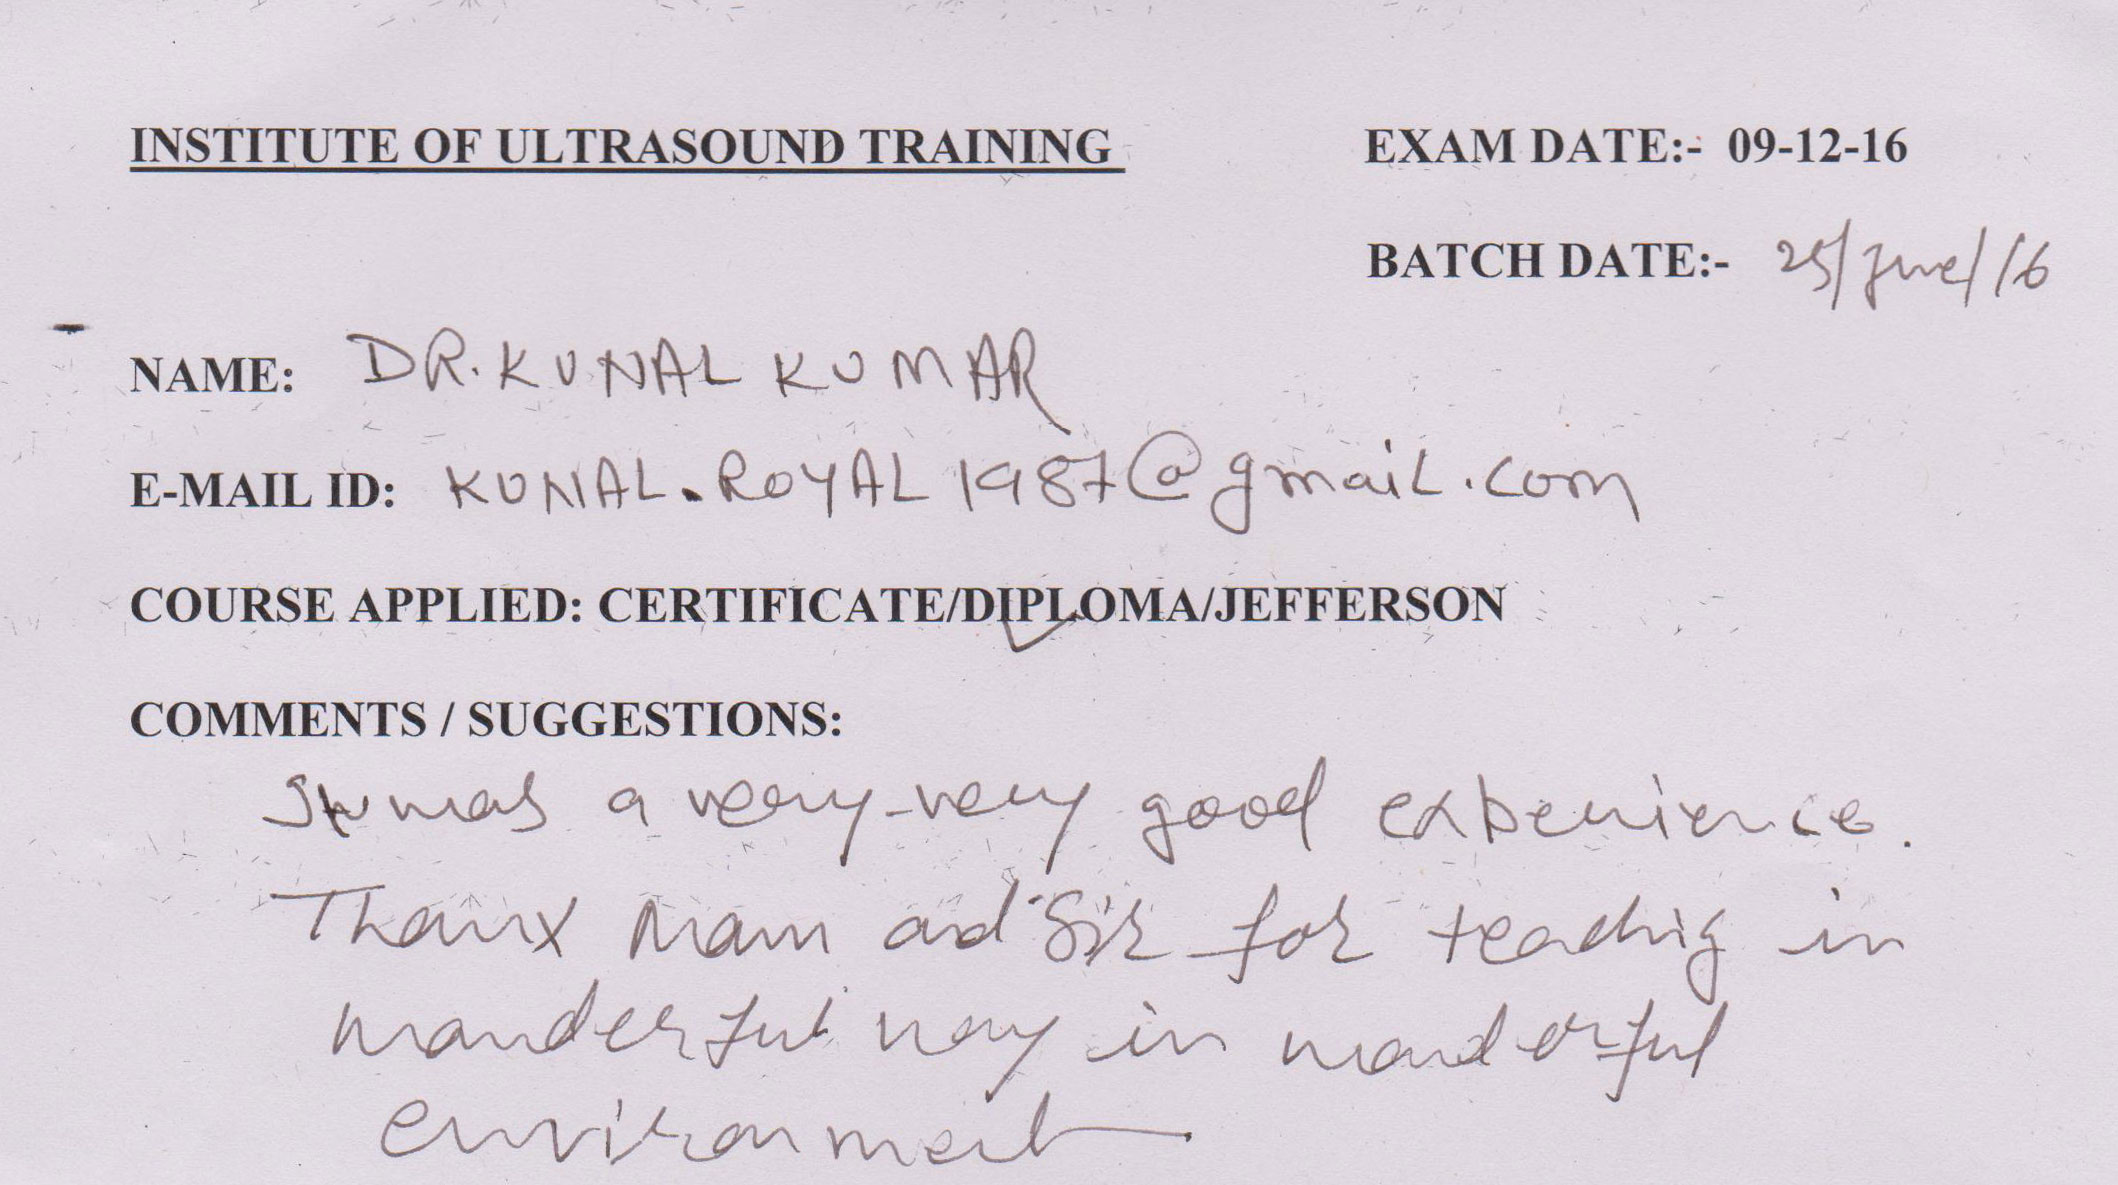 INSTITUTE OF ULTRASOUND TRAINING EXAM DATE:- 09-12-16
BATCH DATE:- 25/June/16
NAME: DR. KUNAL KUMAR
E-MAIL ID: KUNAL.ROYAL1987@gmail.com
COURSE APPLIED: CERTIFICATE/DIPLOMA/JEFFERSON
COMMENTS / SUGGESTIONS:
It was a very-very good experience.
Thanx Mam and Sir for teaching in
wonderful way in wonderful
environment